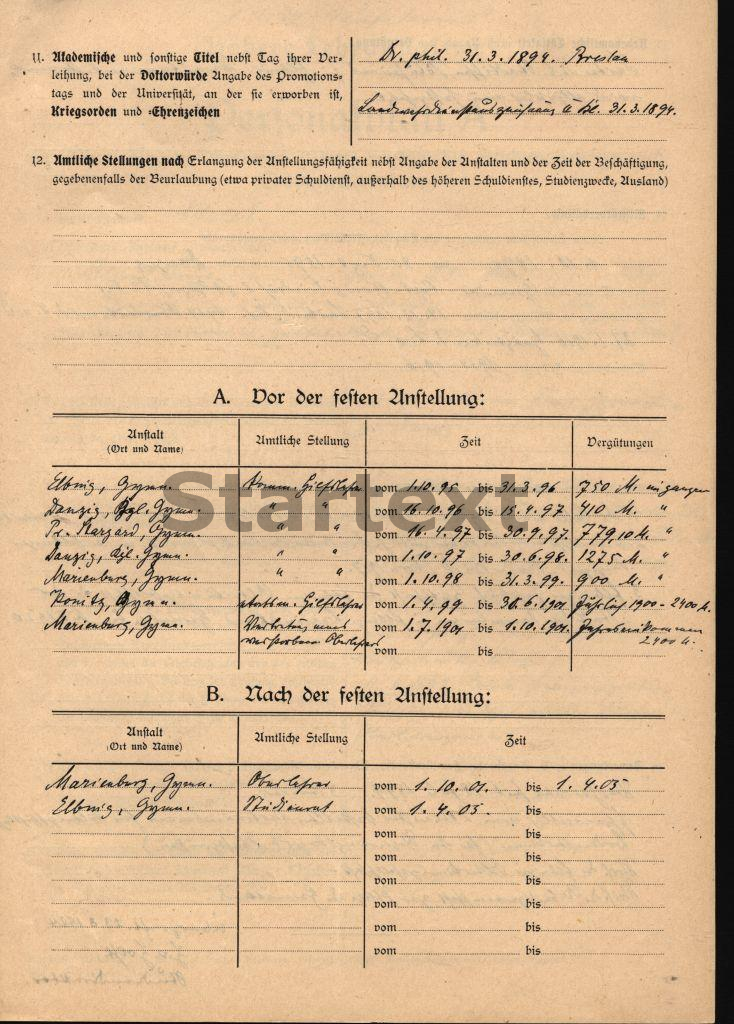 11. Akademische und sonstige Titel nebst Tag ihrer Ver-
leihung, bei der Doktorwürde Angabe des Promotions-
tags und der Universität, an der sie erworben ist,
Kriegsorden und -Ehrenzeichen
Dr. phil. 31. 3. 1894. Breslau
Landwehrdienstauszeichnung II Kl. 31. 3. 1894.
12. Amtliche Stellungen nach Erlangung der Anstellungsfähigkeit nebst Angabe der Anstalten und der Zeit der Beschäftigung,
gegebenenfalls der Beurlaubung (etwa privater Schuldienst, außerhalb des höheren Schuldienstes, Studienzwecke, Ausland)
A. Vor der festen Anstellung:
Anstalt (Ort und Name) Amtliche Stellung Zeit Vergütungen
Elbing, Gymn. Komm. Hilfslehrer vom 1.10.95 bis 31.3.96 750 M.
Startext
Danzig, Kgl. Gymn. " " vom 16.10.96 bis 15.4.97 410 M. "
Pr. Stargard, Gymn. " " vom 16.4.97 bis 30.9.97. M. "
Danzig, Kgl. Gymn. " " vom 1.10.97 bis 30.6.98. 1275 M. "
Marienburg, Gymn. " " vom 1.10.98 bis 31.3.99. 900 M. "
Konitz, Gymn. Hilfslehrer vom 1.4.99 bis 30.6.1901 jährlich 1900-2400 M.
Marienburg, Gymn. Vertretung eines vom 1.7.1901 bis 1.10.1901. Jahreseinkommen
verstorbenen Oberlehrers vom bis 2400 M.
B. Nach der festen Anstellung:
Anstalt (Ort und Name) Amtliche Stellung Zeit
Marienburg, Gymn. Oberlehrer vom 1.10.01. bis 1.4.05
Elbing, Gymn. Studienrat vom 1.4.05. bis
vom bis
vom bis
vom bis
vom bis
vom bis
vom bis